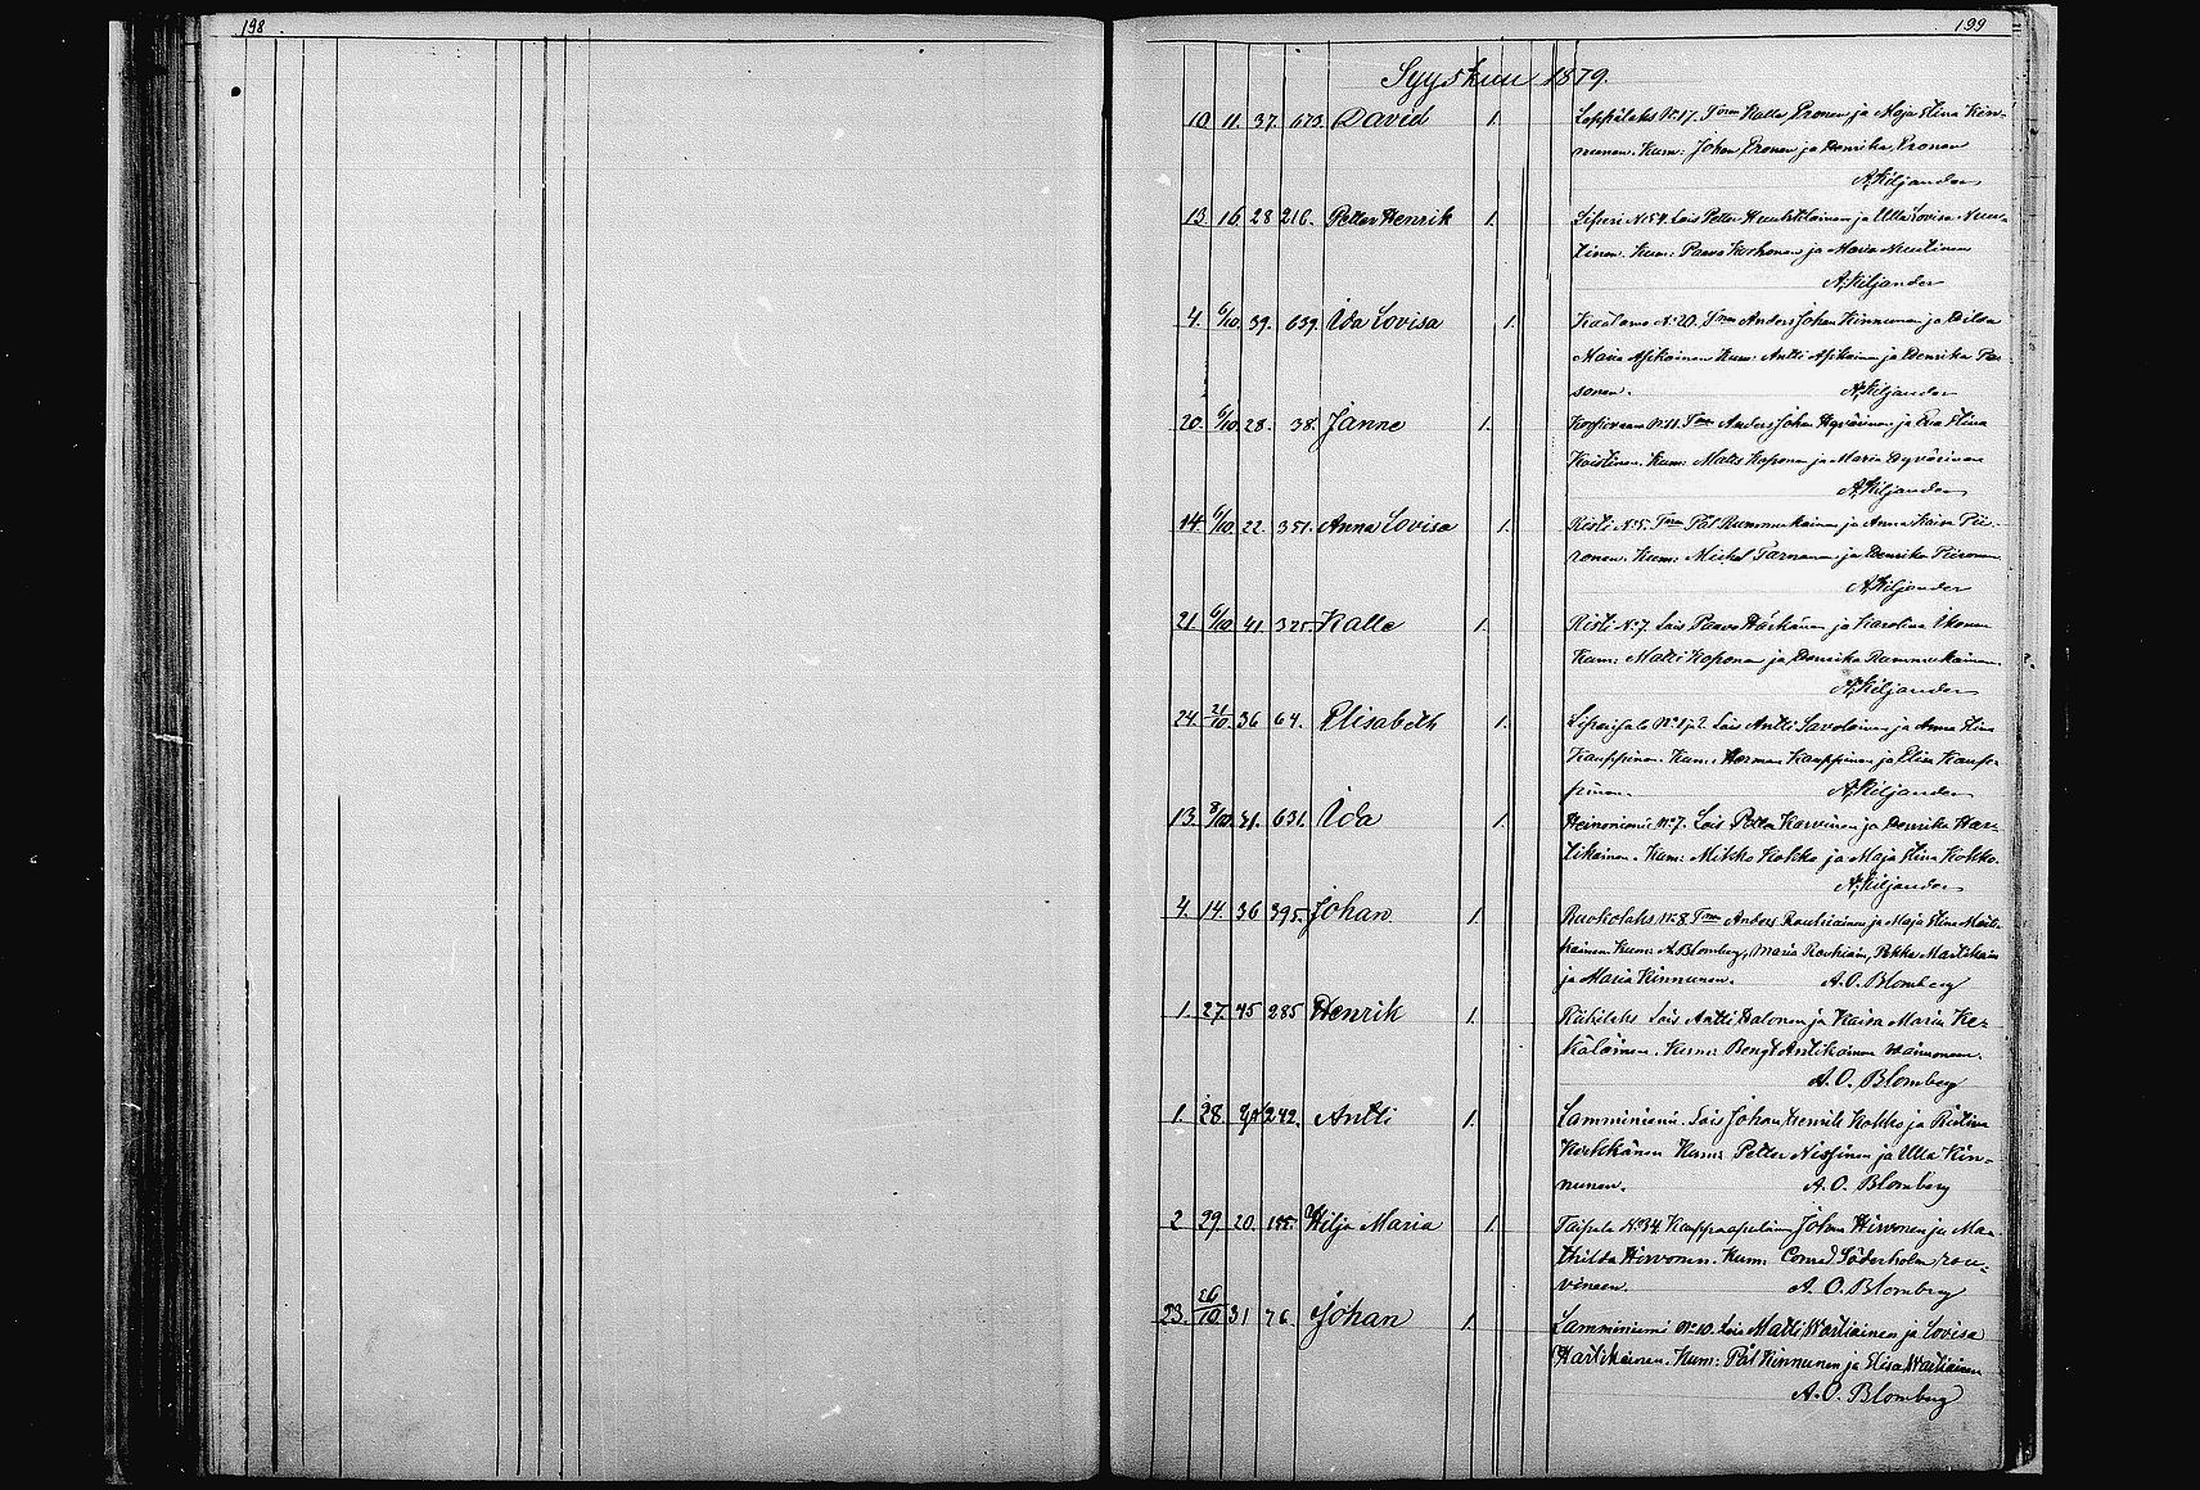 198
199
Syyskuu 1879.
10. 11. 37. 673. David 1. Leppälaks No 17. Tmn Kalle Eronen ja Maja Stina Kin-
nunen. Kum: Johan Eronen ja Henrika Eronen
A. Kiljander
13. 16. 28 216. Petter Henrik 1. Liperi No 54. Lois Petter ja Ulla Lovisa Nuu-
tinen. Kum: Paavo Korhonen ja Maria Nuutinen
A. Kiljander
4. 6/10. 39. 639. Ida Lovisa 1. Kaatamo No 20. Tmn Anders Johan Kinnunen ja Hilda
Maria Asikainen Kum: Antti Asikainen ja Henrika Pa-
sonen. A. Kiljander
20. 6/10. 28. 38. Janne 1. No 11. Tmn Anders Johan Hyvärinen ja Eva Stina
Koistinen. Kum: Matts Koponen ja Maria Hyvärinen
A. Kiljander
14. 6/10. 22. 351. Anna Lovisa 1. Risti No 5. Tmn Pål Rummukainen ja Anna Kaisa Pii-
ronen. Kum: Michel Tarnanen ja Henrika Piironen
A. Kiljander
21. 6/10. 41. 325. Kalle 1. Risti No 7. Lois Paavo ja Karolina Ikonen
Kum: Matti Koponen ja Henrika Rummukainen.
A. Kiljander
24. 21/10. 36 64. Elisabeth 1. Liperinsalo No 1 ja 2. Lois Antti Savolainen ja Anna Stina
Kauppinen. Kum: Herman Kauppinen ja Elisa Kaup-
pinen. A. Kiljander
13. 8/10. 41. 631. Ida 1. Heinoniemi No 7. Lois Petter Karvinen ja Henrika Har-
tikainen. Kum: Mikko Kokko ja Maja Stina Kokko.
A. Kiljander
4. 14. 36 395. Johan 1. Ruokolaks No 8. Tmn Anders Rouhiainen ja Maja Stina Marti-
kainen Kum: A. Blomberg, Maria Rouhiain, Pekka Martikain
ja Maria Kinnunen. A. O. Blomberg
1. 27. 45 285 Henrik 1. Riihilaks Lois Antti Halonen ja Kaisa Maria Ke-
käläinen. Kum: Bengt Antikainen vaimoneen.
A. O. Blomberg
1. 28. 242. Antti 1. Lamminiemi. Lois Johan Henrik Kokko ja Ristina
Kum: Petter Nissinen ja Ulla Kin-
nunen. A. O. Blomberg
2 29. 20. Hilja Maria 1. Taipale No 34. Kauppaapulain Johan Hirvonen ja Ma-
thilda Hirvonen. Kum: Conrad Söderholm rou-
vineen. A. O. Blomberg
23. 26/10. 31 76. Johan 1. Lamminiemi No 10. Lois Matti Wartiainen ja Lovisa
Hartikainen. Kum: Pål Kinnunen ja Elisa Wartiainen
A. O. Blomberg